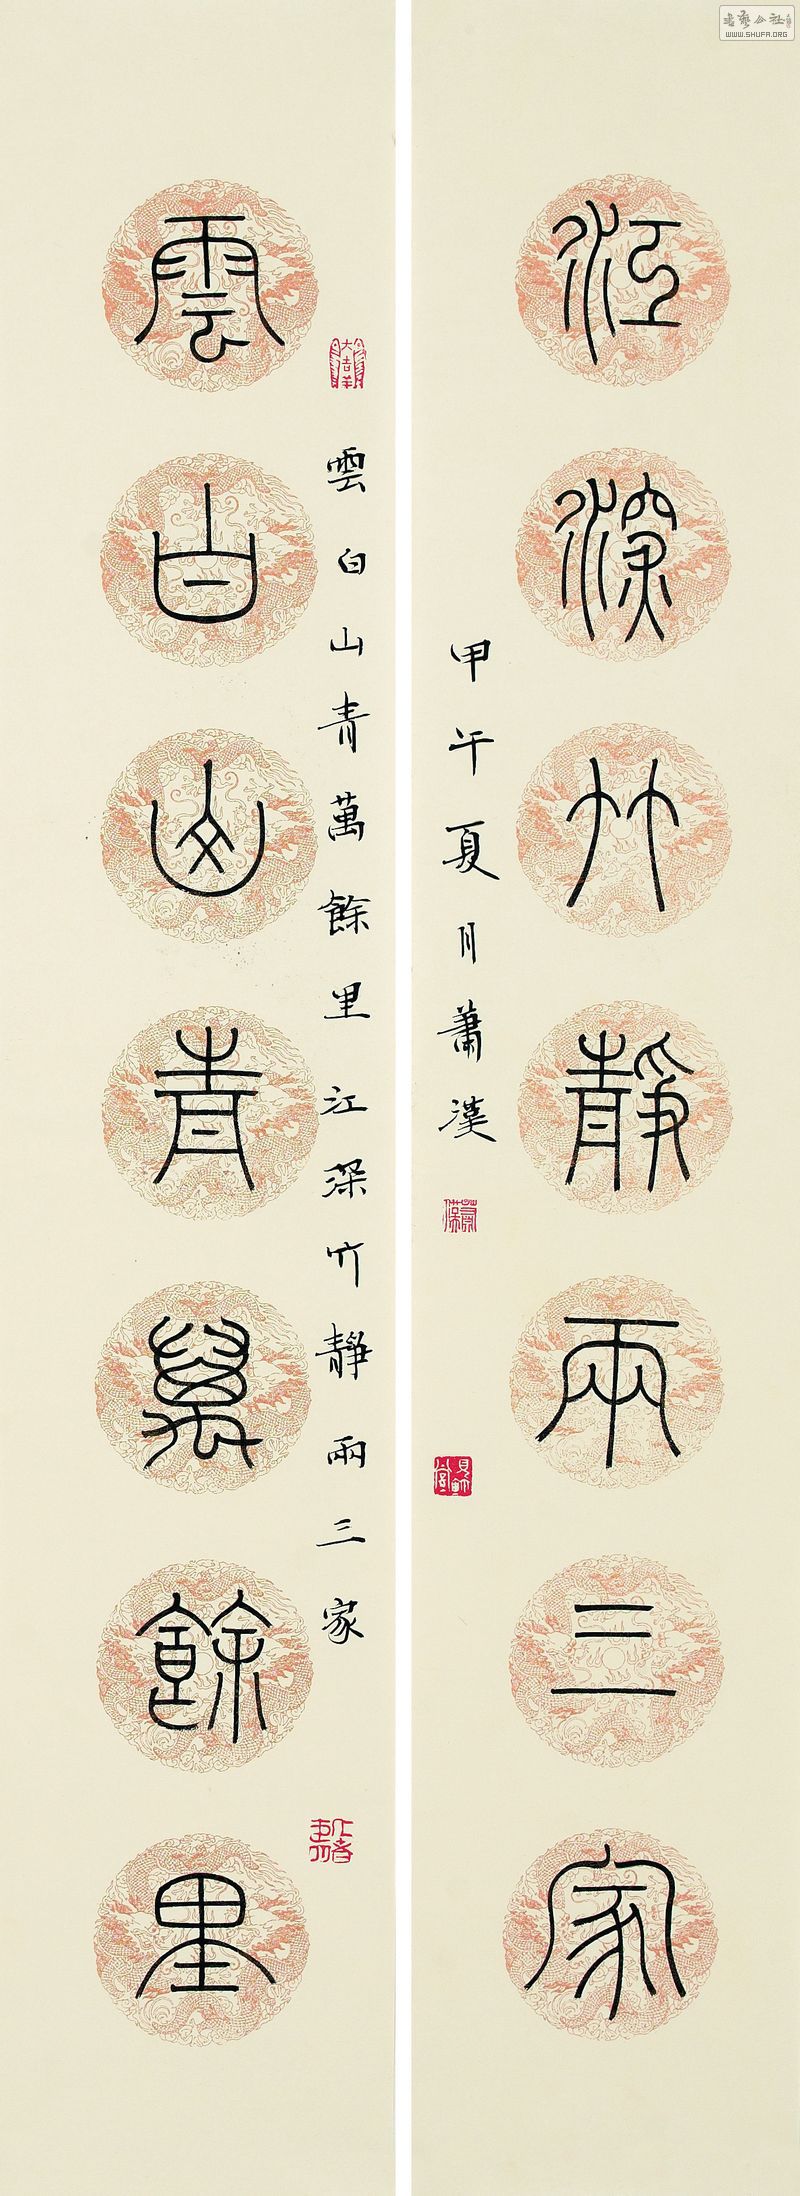 書藝公社
WWW.SHUFA.ORG
江深竹靜兩三家
甲午夏月蕭漢
雲白山青萬餘里江深竹靜兩三家
大吉羊
雲白山青萬餘里